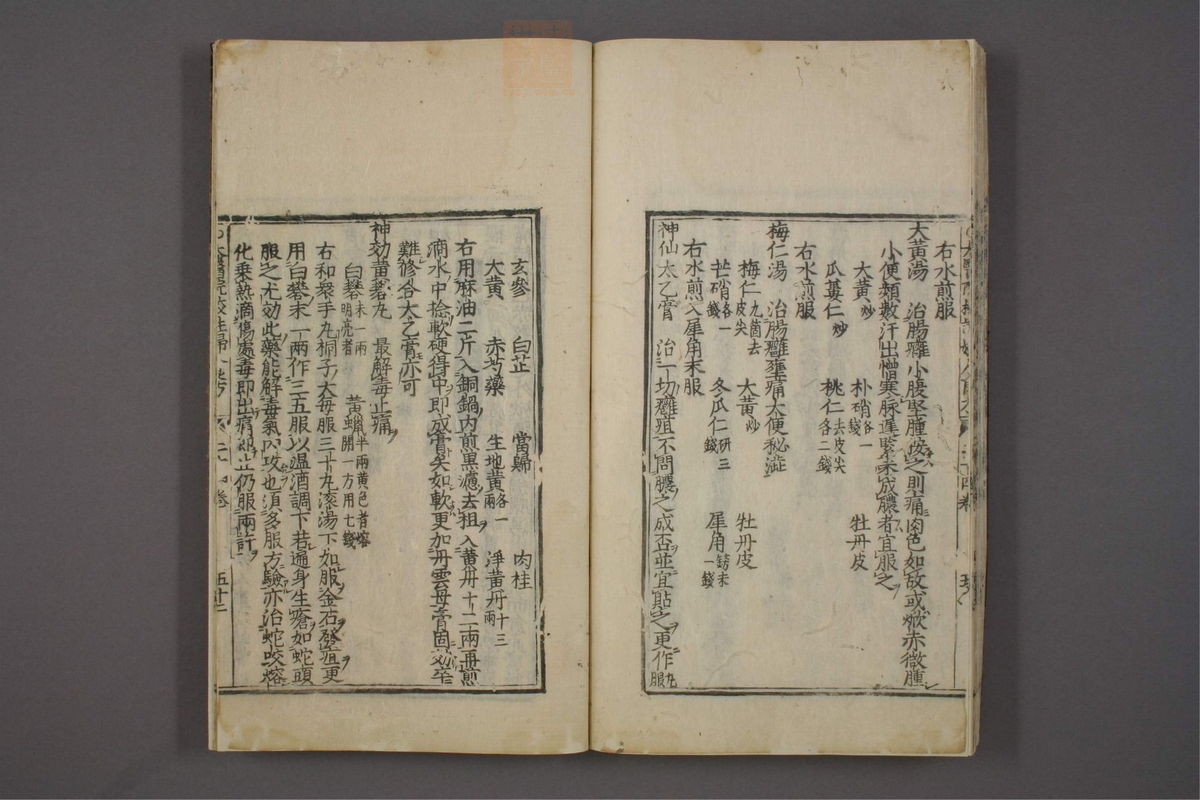 右水煎服
大黄湯　治腸癰小腹堅腫按之則痛肉色如故或焮赤微腫
小便頻數汗出憎寒脉遲緊未成膿者宜服之
大黄炒　朴硝各一錢　牡丹皮
瓜蔞仁炒　桃仁去皮尖各二錢
右水煎服
梅仁湯　治腸癰壅痛大便秘澁
梅仁九箇去皮尖　大黄炒　牡丹皮
芒硝各一錢　冬瓜仁研三錢　犀角鎊末一錢
右水煎入犀角末服
神仙太乙膏　治一切癰疽不問膿之成否並宜貼之更作丸服
玄參　白芷　當歸　肉桂
大黄　赤芍藥　生地黄各一兩　淨黄丹十三兩
右用麻油二斤入銅鍋内煎黒濾去柤入黄丹十二兩再煎
滴水中捻軟硬得中即成膏矣如軟更加丹雲母膏固必卒
難修合太乙膏亦可
神効黄礬丸　最解毒止痛
白礬末一兩明亮者　黄蠟半兩黄色者熔開一方用七錢
右和衆手丸桐子大毎服三十丸滚湯下如服金石發疽更
用白礬末一兩作三五服以温酒調下若遍身生瘡如蛇頭
服之尤効此藥能解毒氣内攻也須多服方驗亦治蛇咬熔
化乗熱滴傷處毒即出痛即止仍服兩許
五十二